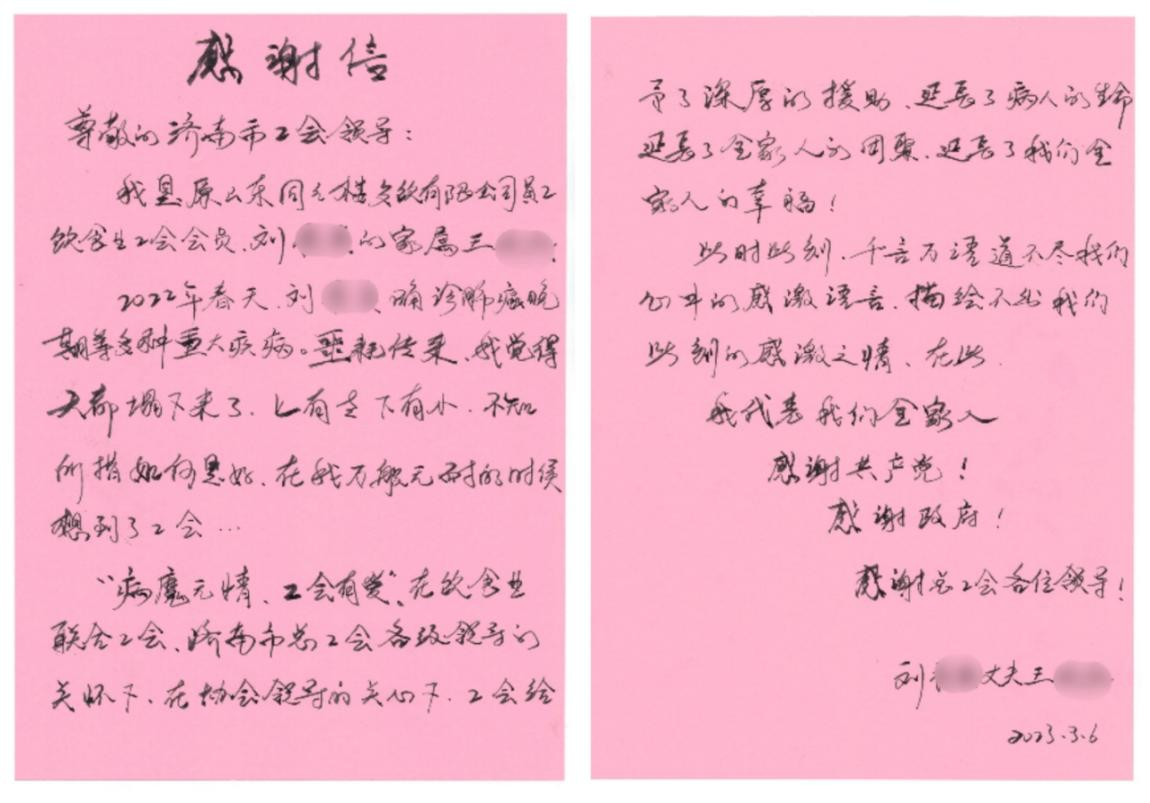 感谢信
尊敬的济南市工会领导：
我是原山东同元楼餐饮有限公司员工
饮食业工会会员、刘 的家属王
2022年春天、刘 确诊肺癌晚
期等多种重大疾病。噩耗传来、我觉得
天都塌下来了、上有老下有小、不知
所措如何是好、在我万般无奈的时候
想到了工会…
“病魔无情、工会有爱”、在饮食业
联合工会、济南市总工会各级领导的
关怀下、在协会领导的关心下、工会给
予了深厚的援助、延长了病人的生命
延长了全家人的团聚、延长了我们全
家人的幸福！
此时此刻、千言万语道不尽我们
心中的感激语言、描绘不出我们
此刻的感激之情、在此、
我代表我们全家人
感谢共产党！
感谢政府！
感谢总工会各位领导！
刘 丈夫王
2023.3.6